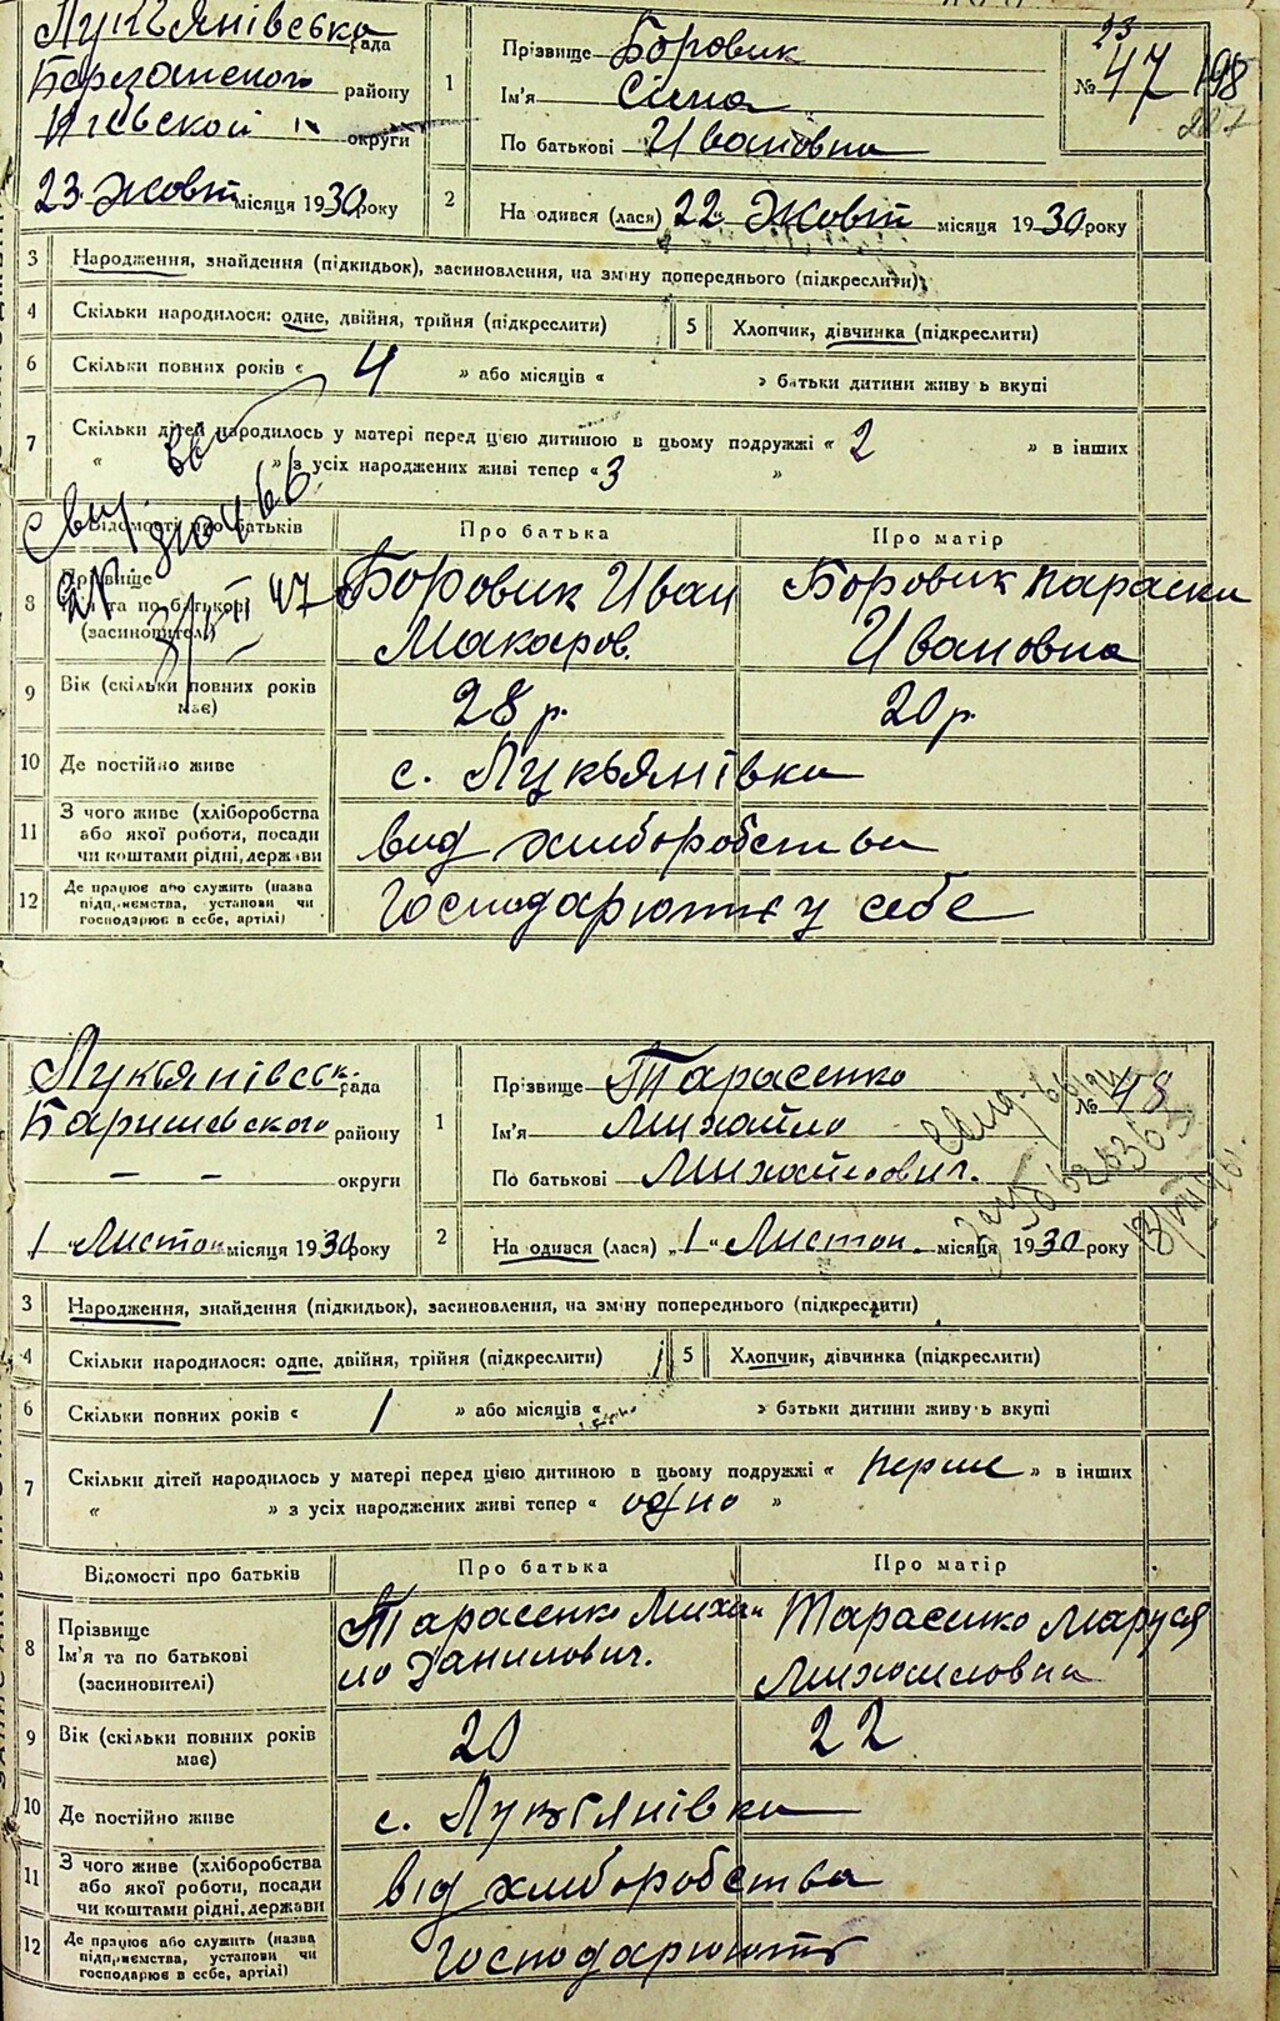 Лукъянівська рада
Березанського району
Київской округи
23 Жовт місяця 1930 року
1 Прізвище Боровик
Ім'я Сіма
По батькові Ивановна
№ 23 47 198
2 На одився (лася) 22 " Жовт місяця 1930 року
3 Народження, знайдення (підкидьок), засиновлення, на зміну попереднього (підкреслити)
4 Скільки народилося: одне, двійня, трійня (підкреслити) 5 Хлопчик, дівчинка (підкреслити)
6 Скільки повних років « 4 » або місяців « » батьки дитини живу ь вкупі
7 Скільки дітей народилось у матері перед цією дитиною в цьому подружжі « 2 » в інших
« » з усіх народжених живі тепер « 3 »
Відомості про батьків Про батька Про матір
8 Прізвище
Ім'я та по батькові
(засиновителі)
Боровик Иван Макаров.
Боровик Параски Ивановна
9 Вік (скільки повних років має) 28 р. 20 р.
10 Де постійно живе с. Лукъянівка
11 З чого живе (хліборобства
або якої роботи, посади
чи коштами рідні, держави
вид хлиборобства
12 Де працює або служить (назва
підприємства, установи чи
господарює в себе, артілі)
Господарюють у себе
Лукъянівськ. рада
Баришевского району
— — округи
1 " Листоп місяця 1930 року
1 Прізвище Тарасенко
Ім'я Михайло
По батькові Михайлович.
№ 48
2 На одився (лася) „1" Листоп. місяця 1930 року
3 Народження, знайдення (підкидьок), засиновлення, на зміну попереднього (підкреслити)
4 Скільки народилося: одне, двійня, трійня (підкреслити) 5 Хлопчик, дівчинка (підкреслити)
6 Скільки повних років « 1 » або місяців « » батьки дитини живу ь вкупі
7 Скільки дітей народилось у матері перед цією дитиною в цьому подружжі « перше » в інших
« » з усіх народжених живі тепер « одно »
Відомості про батьків Про батька Про матір
8 Прізвище
Ім'я та по батькові
(засиновителі)
Тарасенко Михай
ло Данилович.
Тарасенко Маруся
Михайловна
9 Вік (скільки повних років має) 20 22
10 Де постійно живе с. Лукъянівка
11 З чого живе (хліборобства
або якої роботи, посади
чи коштами рідні, держави
від хлиборобства
12 Де працює або служить (назва
підприємства, установи чи
господарює в себе, артілі)
Господарюють